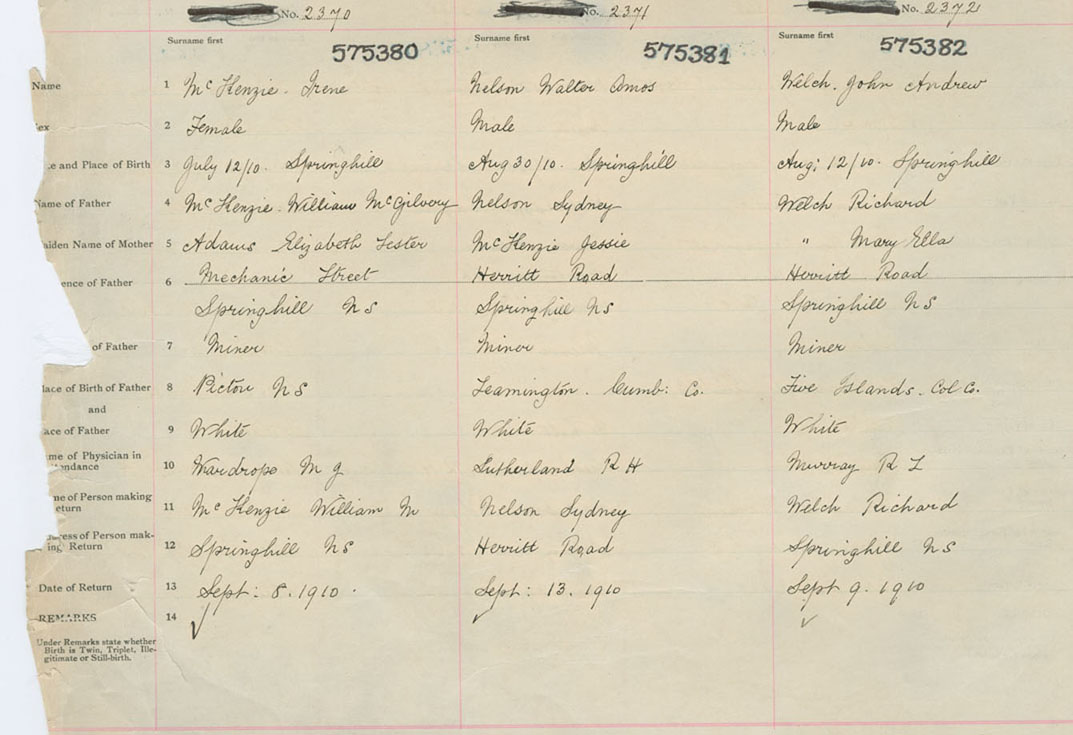 No. 2370 No. 2371 No. 2372
Surname first Surname first Surname first
575380 575381 575382
Name 1 McKenzie. Irene Nelson Walter Amos Welch. John Andrew
ex 2 Female Male Male
te and Place of Birth 3 July 12/10. Springhill Aug 30/10. Springhill Aug: 12/10. Springhill
Name of Father 4 McKenzie. William McGilvery Nelson Sydney Welch Richard
aiden Name of Mother 5 Adams Elizabeth Lester McKenzie Jessie " Mary Ella
ence of Father 6 Mechanic Street Herritt Road Herritt Road
Springhill NS Springhill NS Springhill NS
of Father 7 Miner Miner Miner
lace of Birth of Father 8 Pictou NS Leamington. Cumb: Co. Five Islands. Col Co.
and
ace of Father 9 White White White
me of Physician in
endance 10 Wardrope M G Sutherland R H Murray R L
me of Person making
eturn 11 McKenzie William M Nelson Sydney Welch Richard
ress of Person mak-
ing Return 12 Springhill NS Herritt Road Springhill NS
Date of Return 13 Sept: 8. 1910. Sept: 13. 1910 Sept 9. 1910
REMARKS 14
Under Remarks state whether
Birth is Twin, Triplet, Ille-
gitimate or Still-birth.